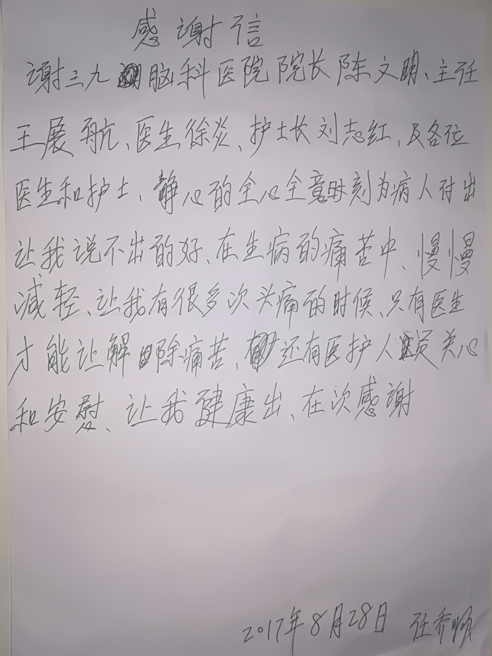 感谢信
谢三九脑科医院院长陈文明、主任
王展航、医生徐炎、护士长刘志红、及各位
医生和护士、静心的全心全意时刻为病人付出
让我说不出的好、在生病的痛苦中、慢慢
减轻、让我有很多次头痛的时候、只有医生
才能让解除痛苦、还有医护人员关心
和安慰、让我健康出、在次感谢
2017年8月28日